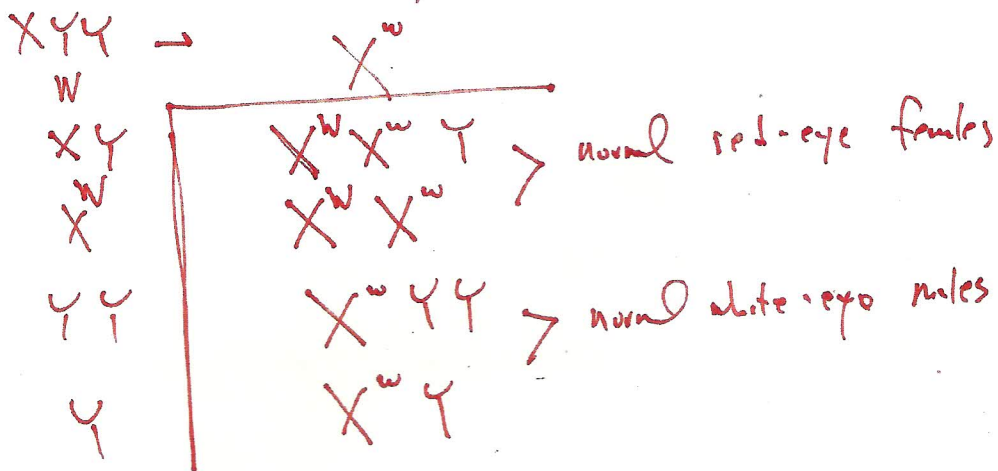 XYY → X^w
X^W Y X^W X^w Y > normal red-eye females
X^W X^W X^w
YY X^w YY > normal white-eye males
Y X^w Y